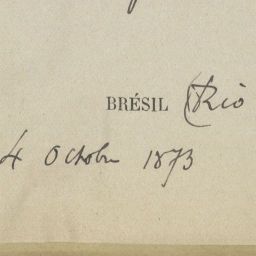 BRÉSIL (Rio
4 Octobre 1873